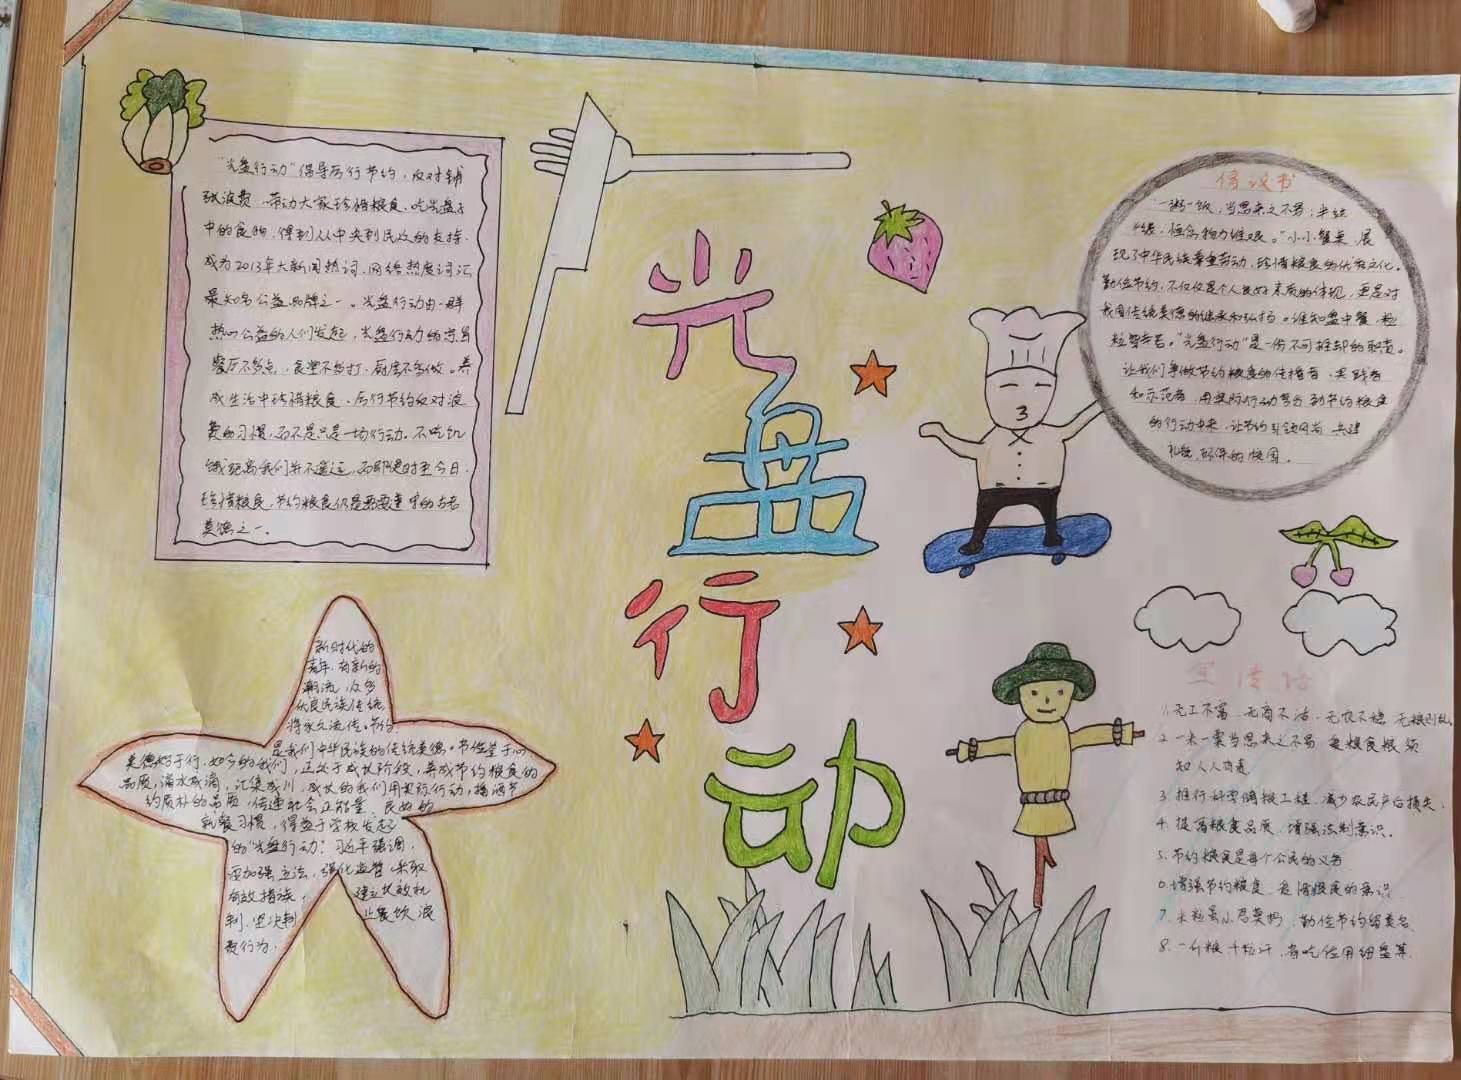 "光盘行动"倡导厉行节约,反对铺
张浪费,带动大家珍惜粮食、吃光盘子
中的食物,得到从中央到民众的支持,
成为2013年大新闻热词、网络热度词汇
最知名公益品牌之一。光盘行动由一群
热心公益的人们发起,光盘行动的宗旨
餐厅不多点、食堂不多打、厨房不多做。养
成生活中珍惜粮食、厉行节约反对浪
费的习惯,而不是只是一场行动。不吃饥
饿距离我们并不遥远,而即便时至今日,
珍惜粮食,节约粮食仍是需要遵守的古老
美德之一。
光盘行动
倡议书
"一粥一饭,当思来之不易;半丝
半缕,恒念物力维艰。"小小餐桌,展
现了中华民族尊重劳动、珍惜粮食的优秀文化。
勤俭节约,不仅仅是个人良好素质的体现,更是对
我国传统美德的继承和弘扬。谁知盘中餐,粒
粒皆辛苦。"光盘行动"是一份不可推卸的职责。
让我们争做节约粮食的传播者、实践者
和示范者,用实际行动努力到节约粮食
的行动中来,让节约引领风尚,共建
礼貌、环保的校园。
新时代的
青年,有新的
潮流,众多
优良民族传统,
将永久流传。节约
是我们中华民族的传统美德。节俭鉴于心
美德始于行,如今的我们,正处于成长阶段,养成节约粮食的
品质,滴水成滴,汇集成川,成长的我们用实际行动,播洒节
约质朴的品质,传递社会正能量,良好的
就餐习惯,得益于学校发起
的"光盘行动!习近平强调,
要加强立法,强化监管,采取
有效措施,建立长效机
制,坚决制止餐饮浪
费行为.
宣传语
1.无工不富,无商不活,无农不稳,无粮则乱
2.一米一粟当思来之不易,爱粮食粮须
知人人有责
3.推行科学储粮工程,减少农民产后损失;
4.提高粮食品质,增强法制意识.
5.节约粮食是每个公民的义务
6.增强节约粮食,爱惜粮食的意识.
7.米粒虽小君莫扔,勤俭节约留美名.
8.一斤粮千粒汗,省吃俭用细盘算.